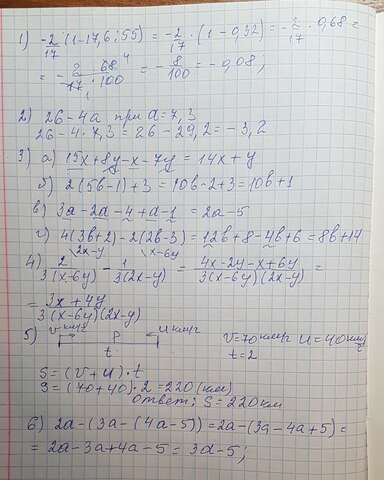 1) -2/17 (1-17,6:55) = -2/17 · (1-0,32) = -2/17 · 0,68 =
= - 2/17 · 68/100 = - 8/100 = -0,08;
2) 26-4a при a=7,3
26-4·7,3=26-29,2=-3,2
3) а) 15x+8y-x-7y=14x+y
б) 2(5b-1)+3=10b-2+3=10b+1
в) 3a-2a-4+a-1=2a-5
г) 4(3b+2)-2(2b-3)=12b+8-4b+6=8b+14
2x-y x-6y
4) 2/3(x-6y) - 1/3(2x-y) = 4x-2y-x+6y/3(x-6y)(2x-y) =
= 3x+4y/3(x-6y)(2x-y)
5) v км/ч P u км/ч V=70 км/ч U=40 км/ч
t t=2
S=(V+U)·t
S=(70+40)·2=220 (км)
ответ; S=220 км
6) 2a-(3a-(4a-5))=2a-(3a-4a+5)=
=2a-3a+4a-5=3a-5;